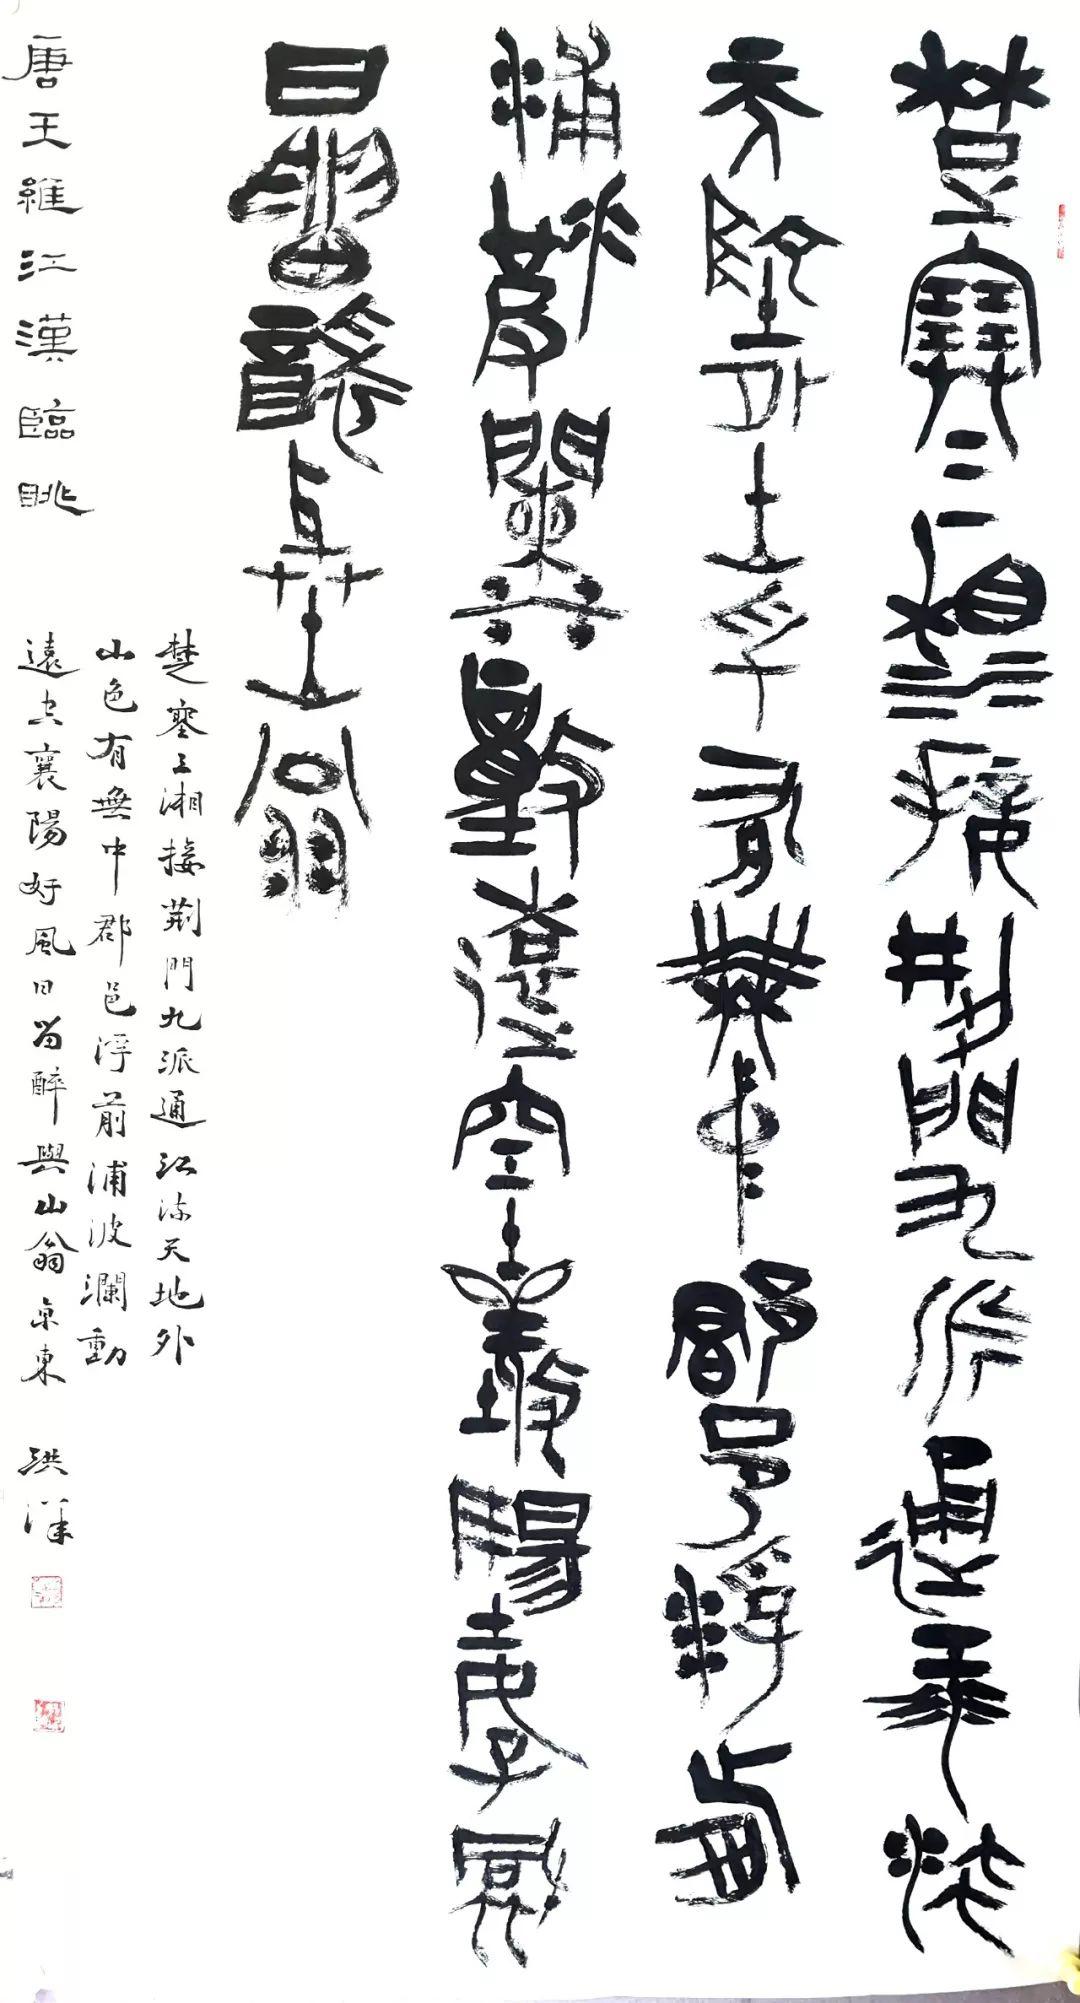 楚塞三湘接荆門九派通江流
天地外山色有無中郡邑浮前
浦波瀾動遠空襄陽好風
日留醉與山翁
唐王維江漢臨眺
楚塞三湘接荆門九派通江流天地外
山色有無中郡邑浮前浦波瀾動
遠空襄陽好風日留醉與山翁京東 洪